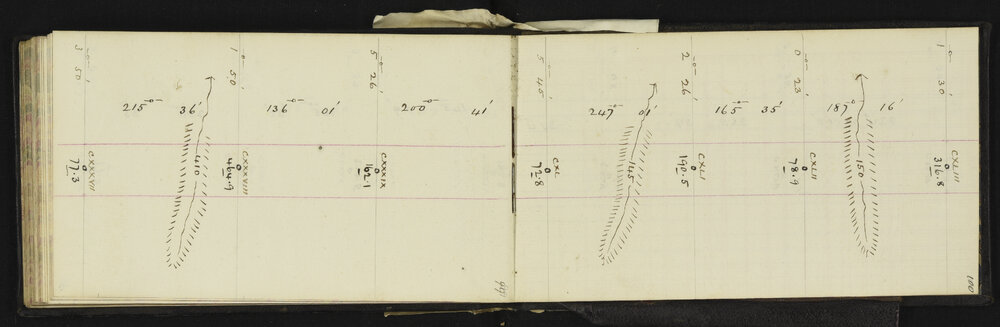 3° 50'
CXXXVII
0
77.3
215° 36'
410
1° 50'
CXXXVIII
0
464.9
136° 01'
5° 26'
CXXXIX
0
162.1
200° 41'
99
5° 45'
CXL
0
72.8
247° 01'
145
2° 26'
CXLI
0
190.5
165° 35'
0° 23'
CXLII
0
78.9
187° 16'
150
1° 30'
CXLIII
0
316.8
100